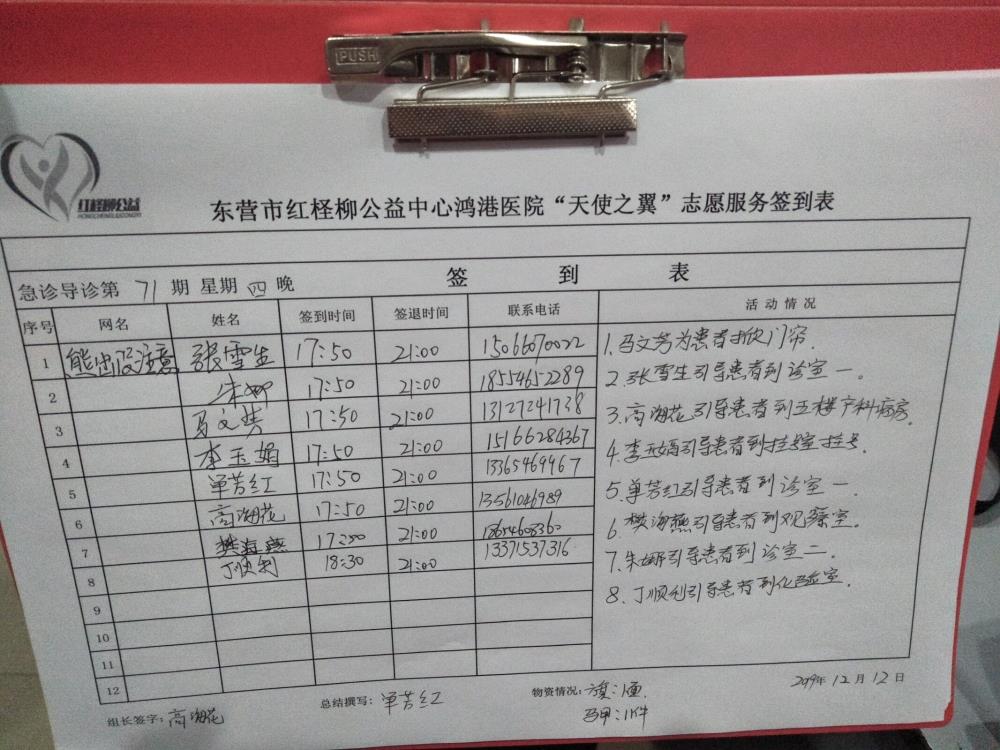 PUSH
红柽柳公益
HONGCHENGLIUGONGYI
东营市红柽柳公益中心鸿港医院“天使之翼”志愿服务签到表
签 到 表
急诊导诊第 71 期 星期 四 晚
序号 网名 姓名 签到时间 签退时间 联系电话 活动情况
1 熊出没注意 张雪生 17:50 21:00 15066070022
2 朱娜 17:50 21:00 18554652289
3 马文芳 17:50 21:00 13127241738
4 李玉娟 17:50 21:00 15166284367
5 单芳红 17:50 21:00 13365469967
6 高海花 17:50 21:00 13561046989
7 樊海燕 17:50 21:00
8 丁顺利 18:30 21:00 13371537316
9
10
11
12
1.马文芳为患者掀门帘.
2.张雪生引导患者到诊室一.
3.高海花引导患者到五楼产科病房.
4.李玉娟引导患者到挂号室挂号.
5.单芳红引导患者到诊室一.
6.樊海燕引导患者到观察室.
7.朱娜引导患者到诊室二.
8.丁顺利引导患者到化验室.
组长签字: 高海花
总结撰写: 单芳红
物资情况: 旗:1面.
马甲:11件
2019年12月12日